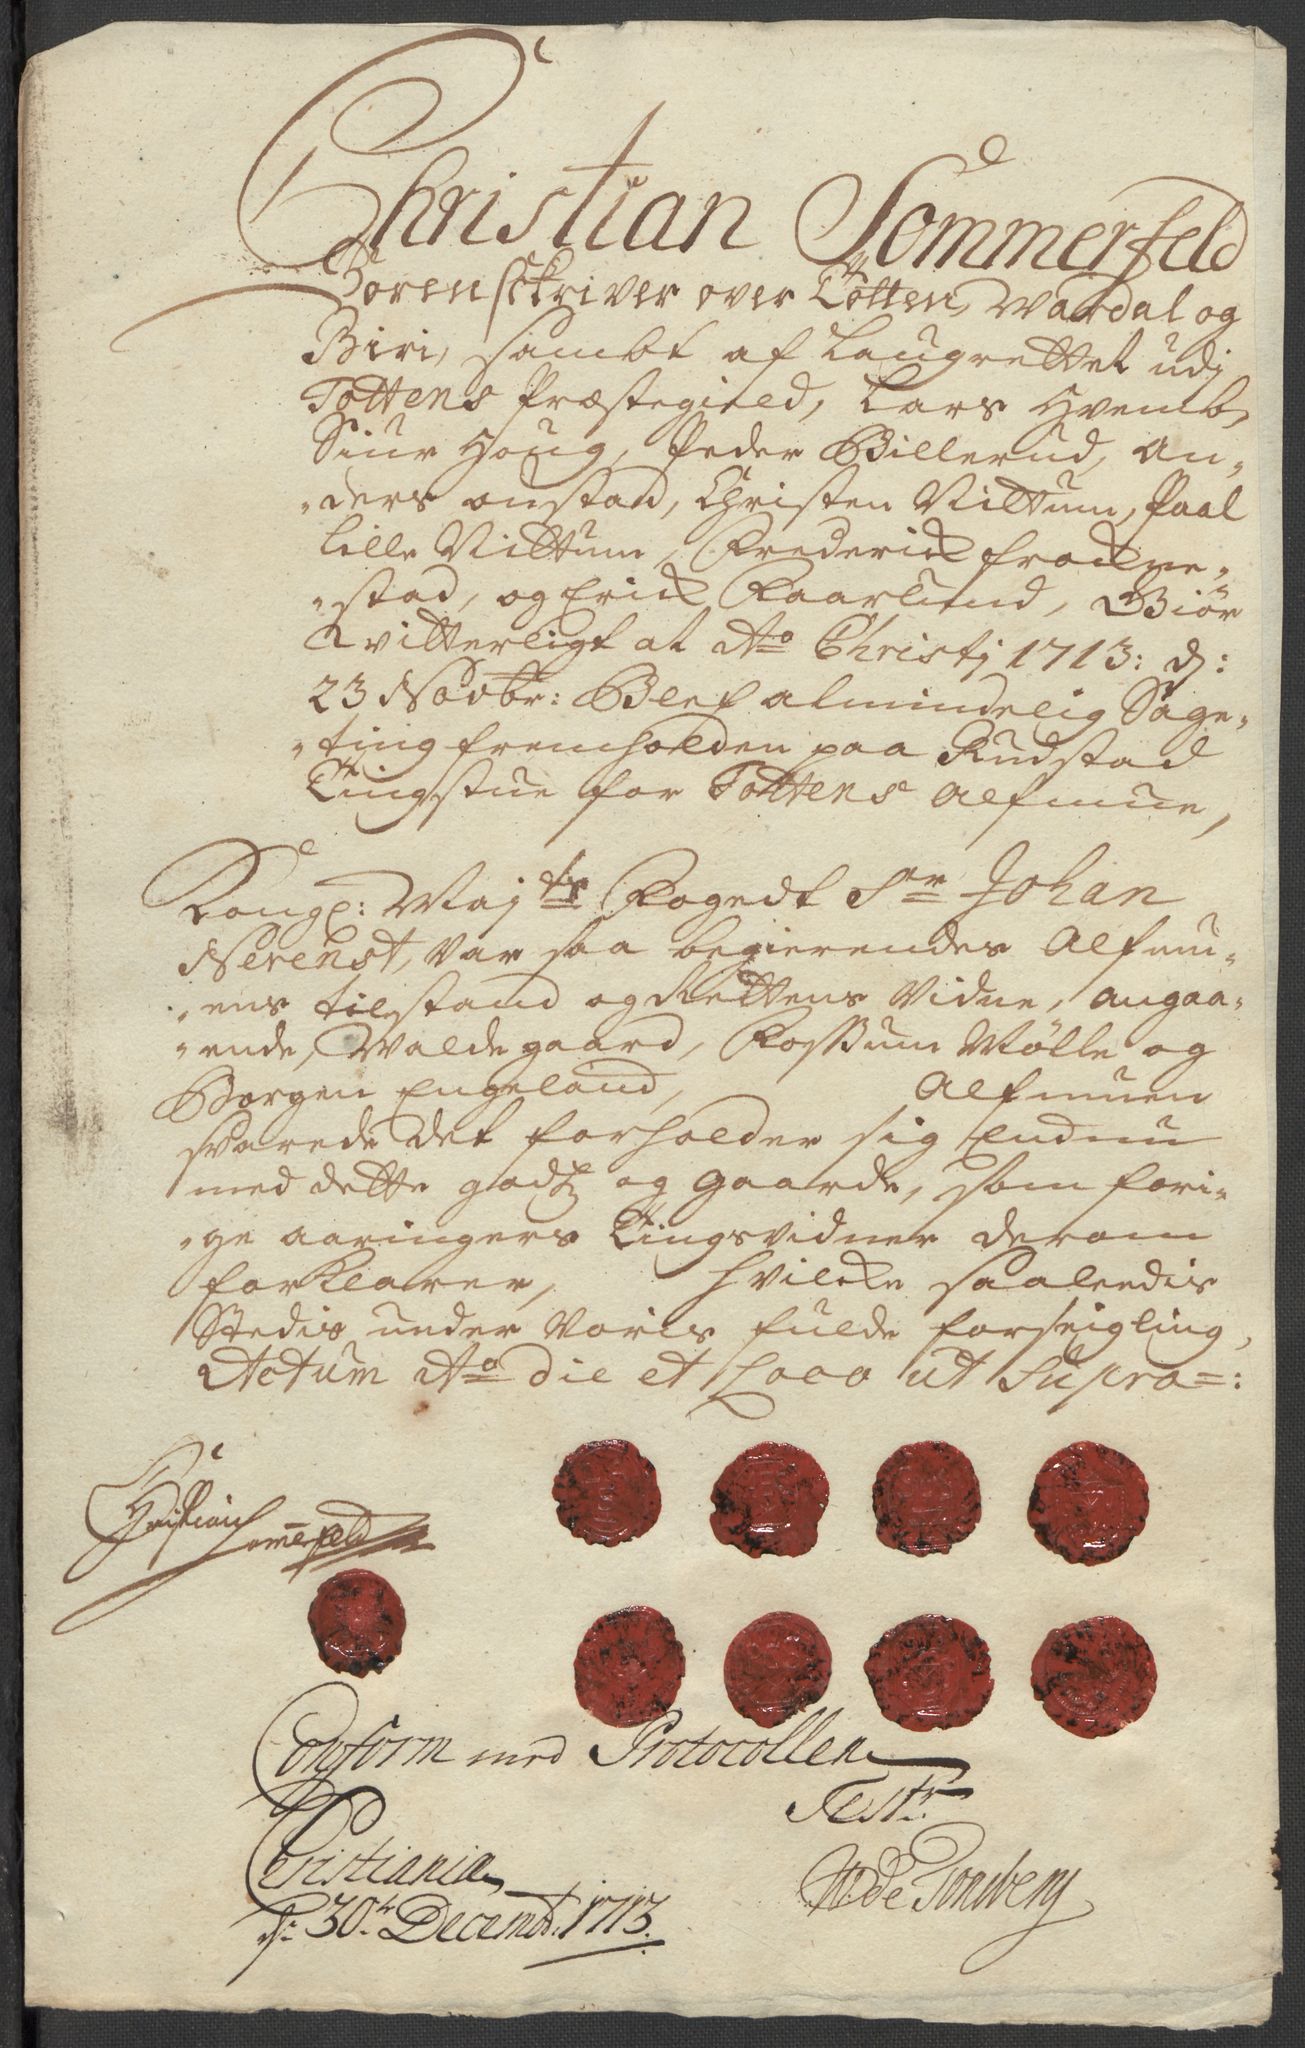 Christian Sommerfeld
Sorenschriver over Totten, Wardal og
Biri, sambt af Laugrettet udj
Tottens Præstegield, Lars Hvemb,
Siur Houg, Peder Billerud, An-
-ders onstad, Christen Nittum, Paal
Lille Nittum, Frederich
-stad, og Erich Kaarlund, Giør
Witterligt at Ao Christj 1713: d:
23 Novbr: Blef almindelig Sage-
-ting fremholden paa Rudstad
Tingstue for Tottens Alfmue,
Kongl: Maj ts Fogedt Sr Johan
Nerenst, var saa begierendes Alfmu-
-ens tilstand og Rettens Vidne, angaa-
-ende, Walde gaard, Fossum Mølle og
Borgen Engeland, Alfmuen
svarede det forholder sig Endnu
med dette godtz og gaarde, som fori-
-ge aaringers Tingsvidner derom
forklarer, hvilcke saaledis
Stedis under Voris fulde forseigling,
Actum Ao die et Loco ut Supra=:
Christian
Somerfeld
Conform med Protocollen
Test:
Christiania
d: 30te Decemb: 1713.
de Tonsberg